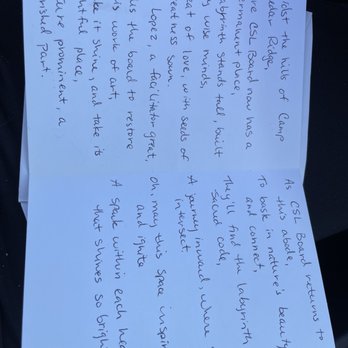 the hills of Camp
Ridge,
CSL Board now has a
place,
stands tall, built
wise minds,
of love, with seeds of
sown.
Lopez, a facilitator great,
the board to restore
work of art,
it shine, and take its
place,
prominent, a
part.
As CSL Board returns to
this abode,
To bask in nature's beauty
and connect,
They'll find the labyrinth,
sacred code,
A journey inward, where
intersect.
Oh, may this space
and ignite
A spark within each
that shines so